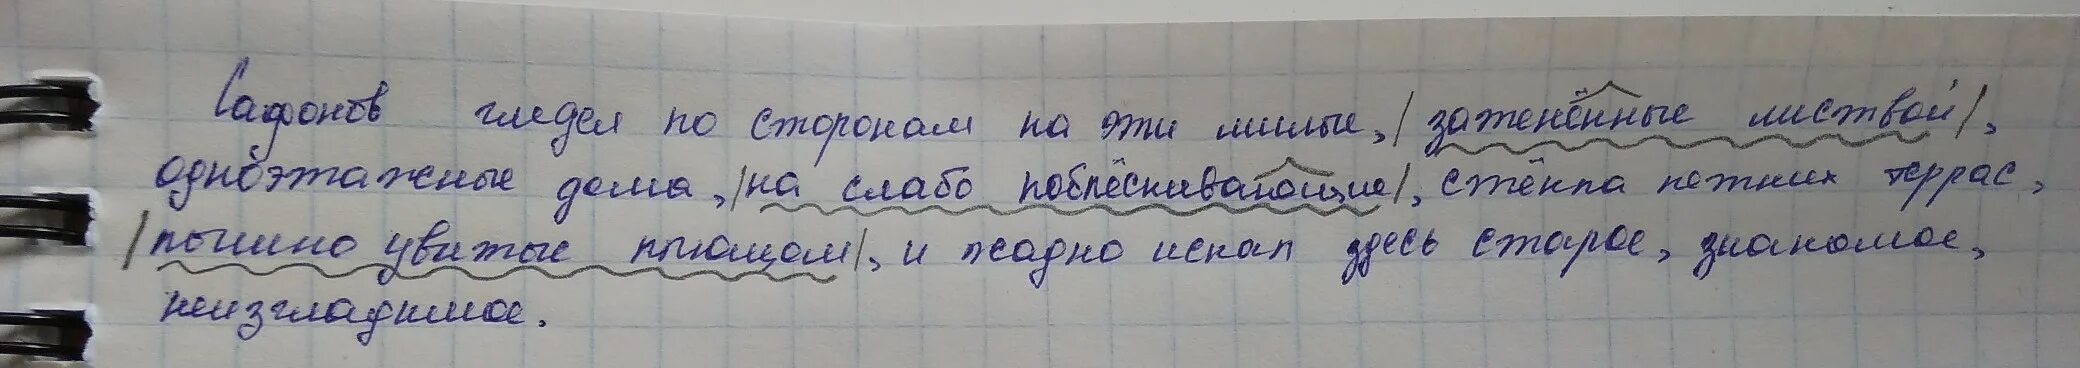 Сафонов глядел по сторонам на эти милые, /затенённые листвой/,
одноэтажные дома, /на слабо поблёскивающие/, стёкла нижних террас,
/пышно увитые плющом/, и жадно искал здесь старое, знакомое,
неизгладимое.